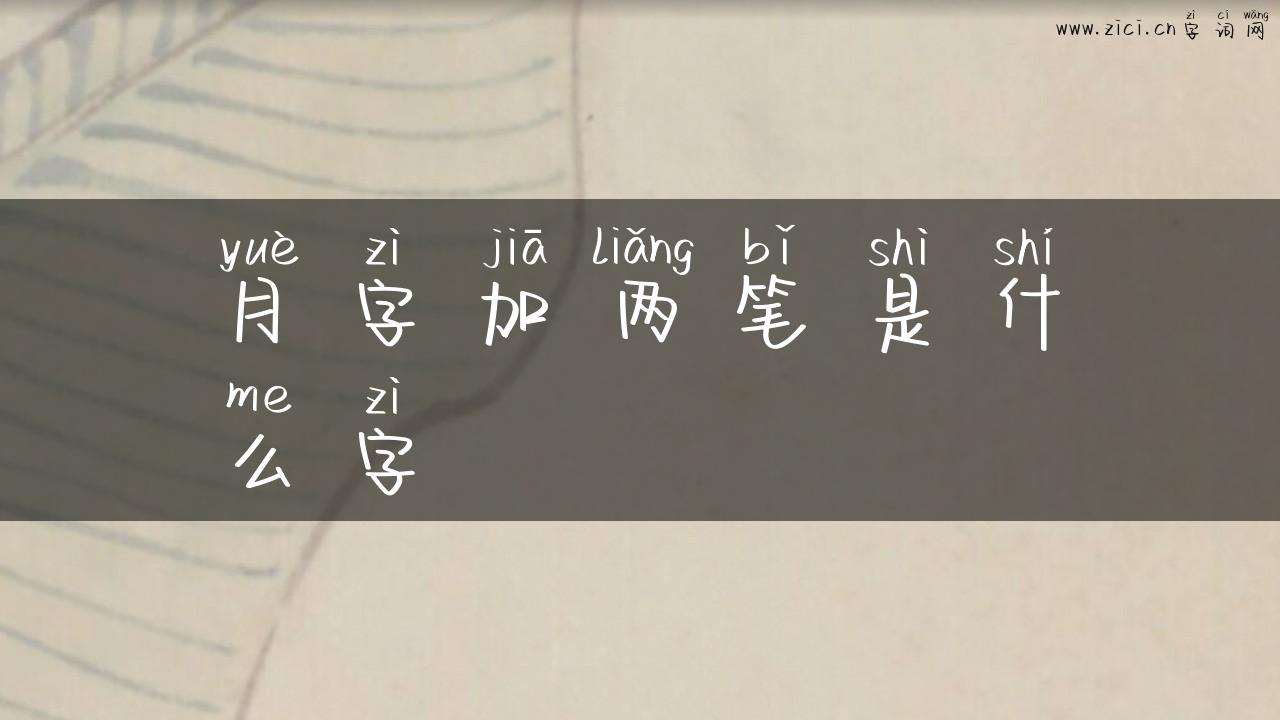 zì cí wǎng
www.zici.cn 字词网
yuè zì jiā liǎng bǐ shì shí
月字加两笔是什
me zì
么字